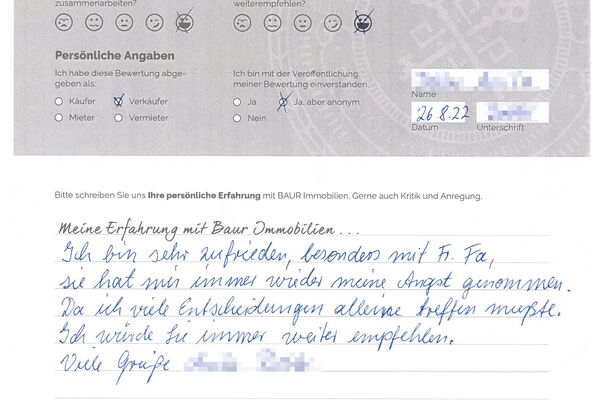 zusammenarbeiten?
weiterempfehlen?
Persönliche Angaben
Ich habe diese Bewertung abge-
geben als:
Käufer Verkäufer
Mieter Vermieter
Ich bin mit der Veröffentlichung
meiner Bewertung einverstanden.
Ja Ja, aber anonym
Nein
Name
26.8.22
Datum Unterschrift
Bitte schreiben Sie uns Ihre persönliche Erfahrung mit BAUR Immobilien. Gerne auch Kritik und Anregung.
Meine Erfahrung mit Baur Immobilien . . .
Ich bin sehr zufrieden, besonders mit Fr. Fa,
sie hat mir immer wieder meine Angst genommen.
Da ich viele Entscheidungen alleine treffen mußte.
Ich würde Sie immer weiter empfehlen.
Viele Grüße